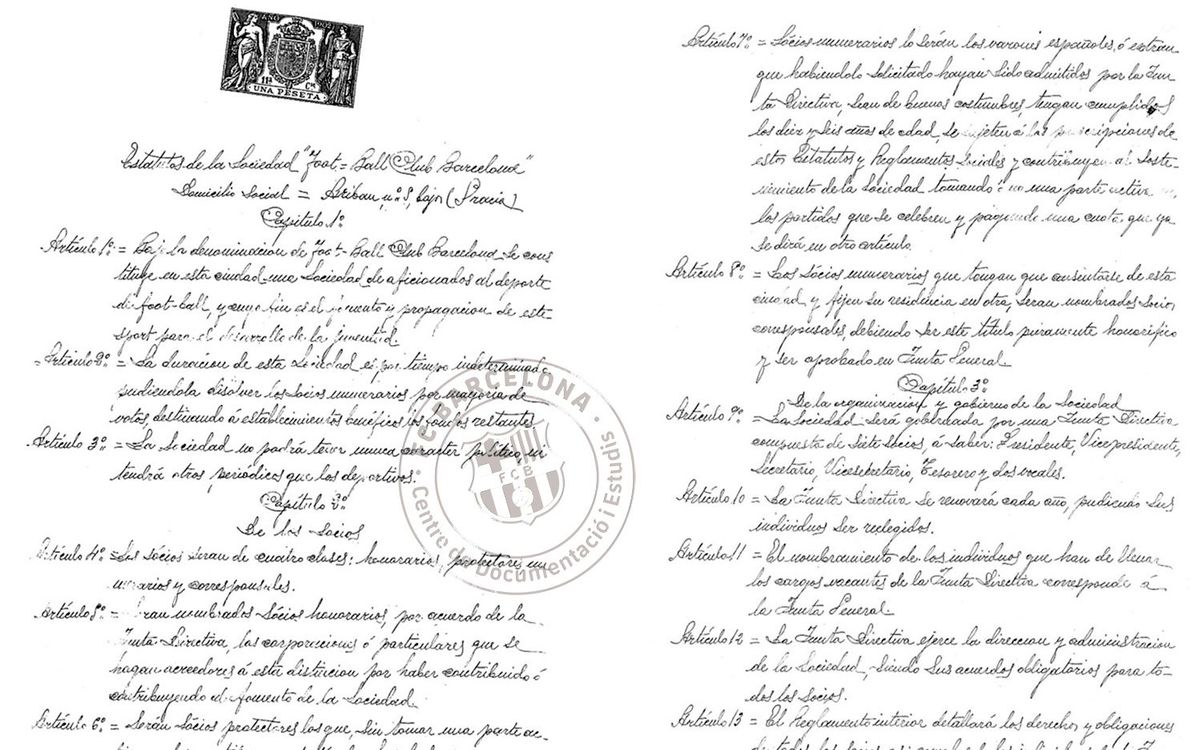 AÑO 1902
11ª CL
UNA PESETA
Estatutos de la Sociedad "Foot-Ball Club Barcelona"
Domicilio Social = Aribau, nº 5, bajos (Gracia)
Capítulo 1º
Artículo 1º = Bajo la denominacion de Foot-Ball Club Barcelona se cons
tituye en esta ciudad una Sociedad de aficionados al deporte
de foot-ball, y cuyo fin es el fomento y propagacion de este
sport para el desarrollo de la juventud.
Artículo 2º = La duracion de esta Sociedad es por tiempo indeterminado
pudiendola disolver los socios numerarios por mayoria de
votos, destinando á establecimientos benéficos los fondos restantes.
Artículo 3º = La Sociedad no podrá tener nunca carácter político ni
tendrá otros periódicos que los deportivos.
Capítulo 2º
De los Socios
Artículo 4º = Los sócios seran de cuatro clases: honorarios, protectores nu
merarios y corresponsales.
Artículo 5º = Seran nombrados sócios honorarios, por acuerdo de la
Junta Directiva, las corporaciones ó particulares que se
hagan acreedores á esta distincion por haber contribuido ó
contribuyendo al fomento de la Sociedad.
Artículo 6º = Serán sócios protectores los que, sin tomar una parte ac-
Artículo 7º = Sócios numerarios lo serán los varones españoles, ó extran
que habiendolo solicitado hayan sido admitidos por la Jun
ta Directiva, sean de buenas costumbres, tengan cumplidos
los diez y seis años de edad, se sujeten á las prescripciones de
estos Estatutos y Reglamentos sociales y contribuyen al soste-
nimiento de la Sociedad tomando ó no una parte activa en
los partidos que se celebren y pagando una cuota que ya
se dirá en otro artículo.
Artículo 8º = Los Sócios numerarios que tengan que ausentarse de esta
ciudad y fijen su residencia en otra, seran nombrados socios
corresponsales, debiendo ser este título puramente honorífico
y ser aprobado en Junta General.
Capítulo 3º
De la organizacion y gobierno de la Sociedad
Artículo 9º = La Sociedad será gobernada por una Junta Directiva
compuesta de siete sócios á saber: Presidente, Vicepresidente,
Secretario, Vicesecretario, Tesorero y dos vocales.
Artículo 10 = La Junta Directiva se renovará cada año, pudiendo sus
individuos ser reelegidos.
Artículo 11 = El nombramiento de los individuos que han de llenar
los cargos vacantes de la Junta Directiva corresponde á
la Junta General.
Artículo 12 = La Junta Directiva ejerce la direccion y administracion
de la Sociedad, siendo sus acuerdos obligatorios para to-
dos los socios.
Artículo 13 = El Reglamento interior detallará los derechos y obligaciones
FC BARCELONA
FCB
Centre de Documentació i Estudis